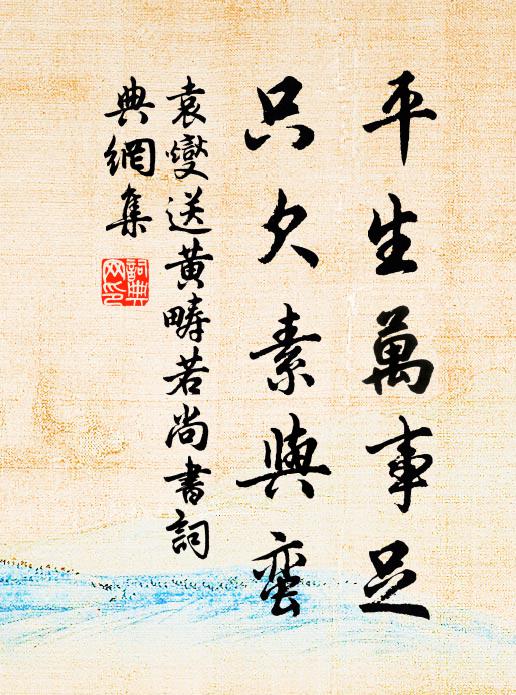 平生萬事足
只欠素與蠻
袁燮送黃疇若尚書詞
典網集
詞典
网印